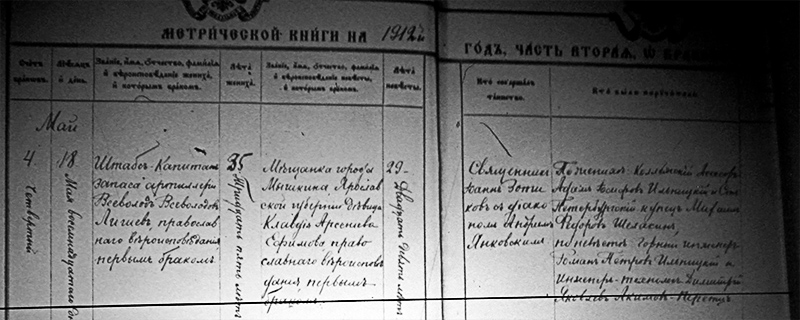 МЕТРИЧЕСКОЙ КНИГИ НА 1912й
ГОДЪ, ЧАСТЬ ВТОРАЯ, Ѿ
Счетъ
Мѣсяцъ
и день.
Званіе, имя, отчество, фамилія
и вѣроисповѣданіе жениха,
и которымъ бракомъ.
Лѣта
жениха.
Званіе, имя, отчество, фамилія
и вѣроисповѣданіе невѣсты,
и которымъ бракомъ.
Лѣта
невѣсты.
Кто совершалъ
таинство.
Кто были
Май
4
четвертый
18
Мая восемнадцатаго
Штабсъ-Капитанъ
запаса артиллеріи
Всеволодъ Всеволодо
православ
наго вѣроисповѣданія
первымъ бракомъ
35
Тридцать пять лѣтъ
Мѣщанка города
Мышкина, Ярослав
ской губерніи дѣвица
Клавдія Арсеніева
Ефимова право
славнаго вѣроиспов
данія первымъ
бракомъ.
29
Двадцать девять лѣтъ
Священникъ
Іоаннъ
ковъ съ діако
номъ Андреемъ
Янковскимъ
По женихѣ: Коллежскій
Адамъ Ильницкій и
Петербургскій купецъ Михаилъ
Ѳедоровъ
по невѣстѣ: горный инженеръ
Романъ Петровъ Ильницкій и
Инженеръ-технологъ Димитрій
Яковлевъ Акимовъ-Перетцъ